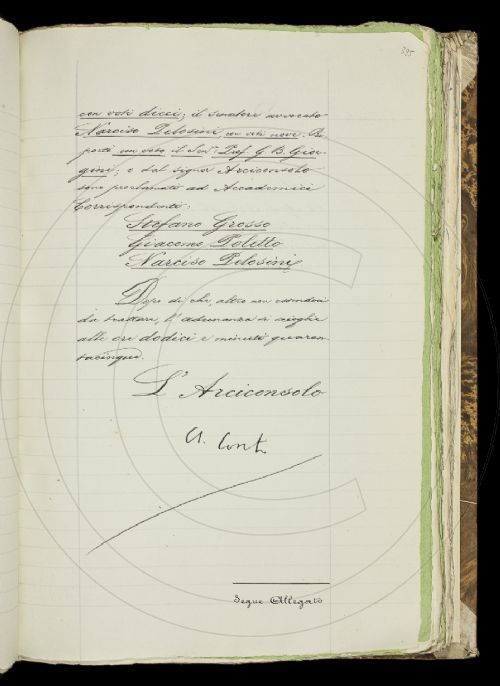 395
con voti dieci; il senatore avvocato
Narciso Pelosini, con voti nove. Ri-
portò un voto il Sen.r Prof. G. B. Gior-
gini; e dal signor Arciconsolo
sono proclamati ad Accademici
Corrispondenti:
Stefano Grosso
Giacomo Poletto
Narciso Pelosini
Dopo di che, altro non essendovi
da trattare, l'adunanza si scioglie
alle ore dodici e minuti quaran-
tacinque.
L'Arciconsolo
A. Conti
Segue Allegato